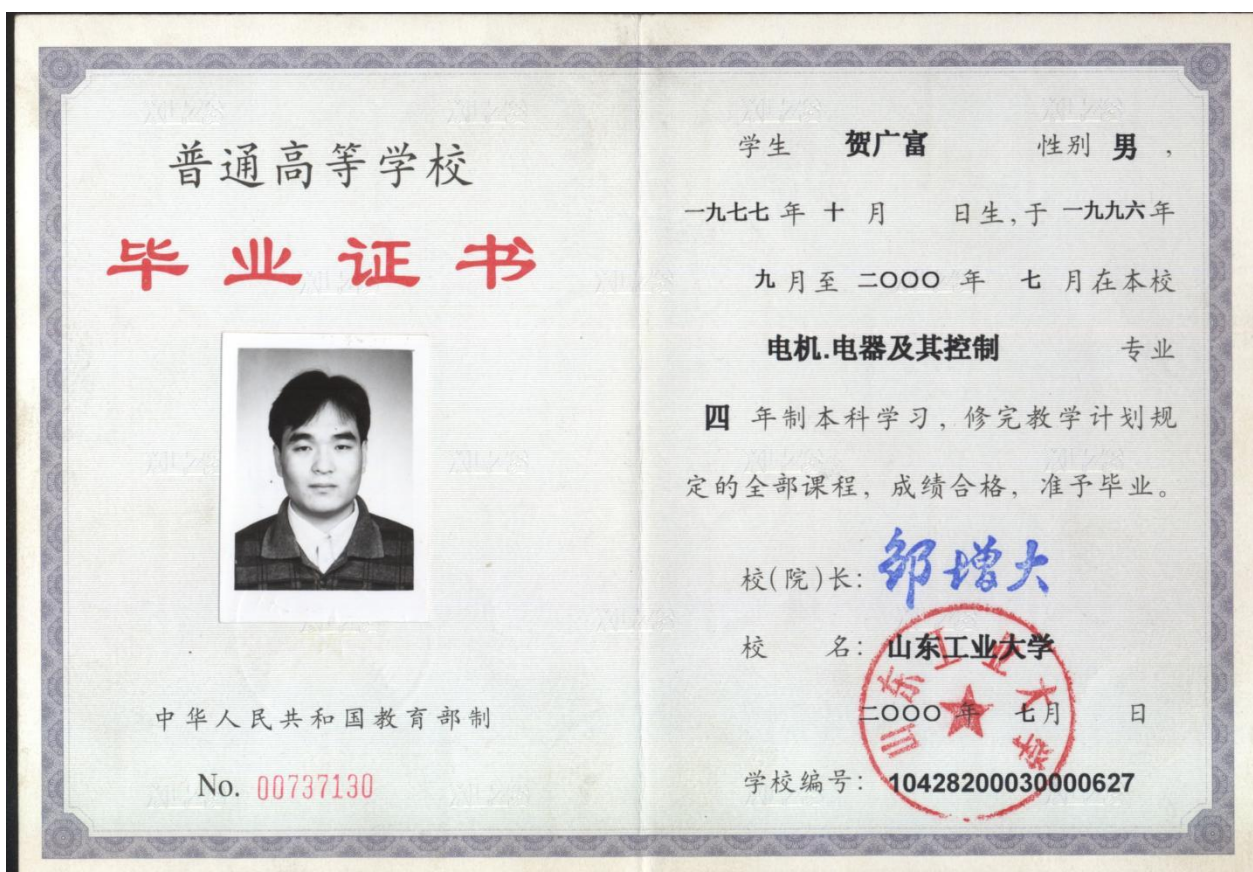 普通高等学校
毕业证书
中华人民共和国教育部制
No. 00737130
学生 贺广富 性别 男 ,
一九七七 年 十 月 日生,于 一九九六 年
九 月至 二〇〇〇 年 七 月在本校
电机.电器及其控制 专业
四 年制本科学习，修完教学计划规
定的全部课程，成绩合格，准予毕业。
校(院)长: 邹增大
校 名: 山东工业大学
山东工业大学
二〇〇〇 年 七月 日
学校编号: 10428200030000627